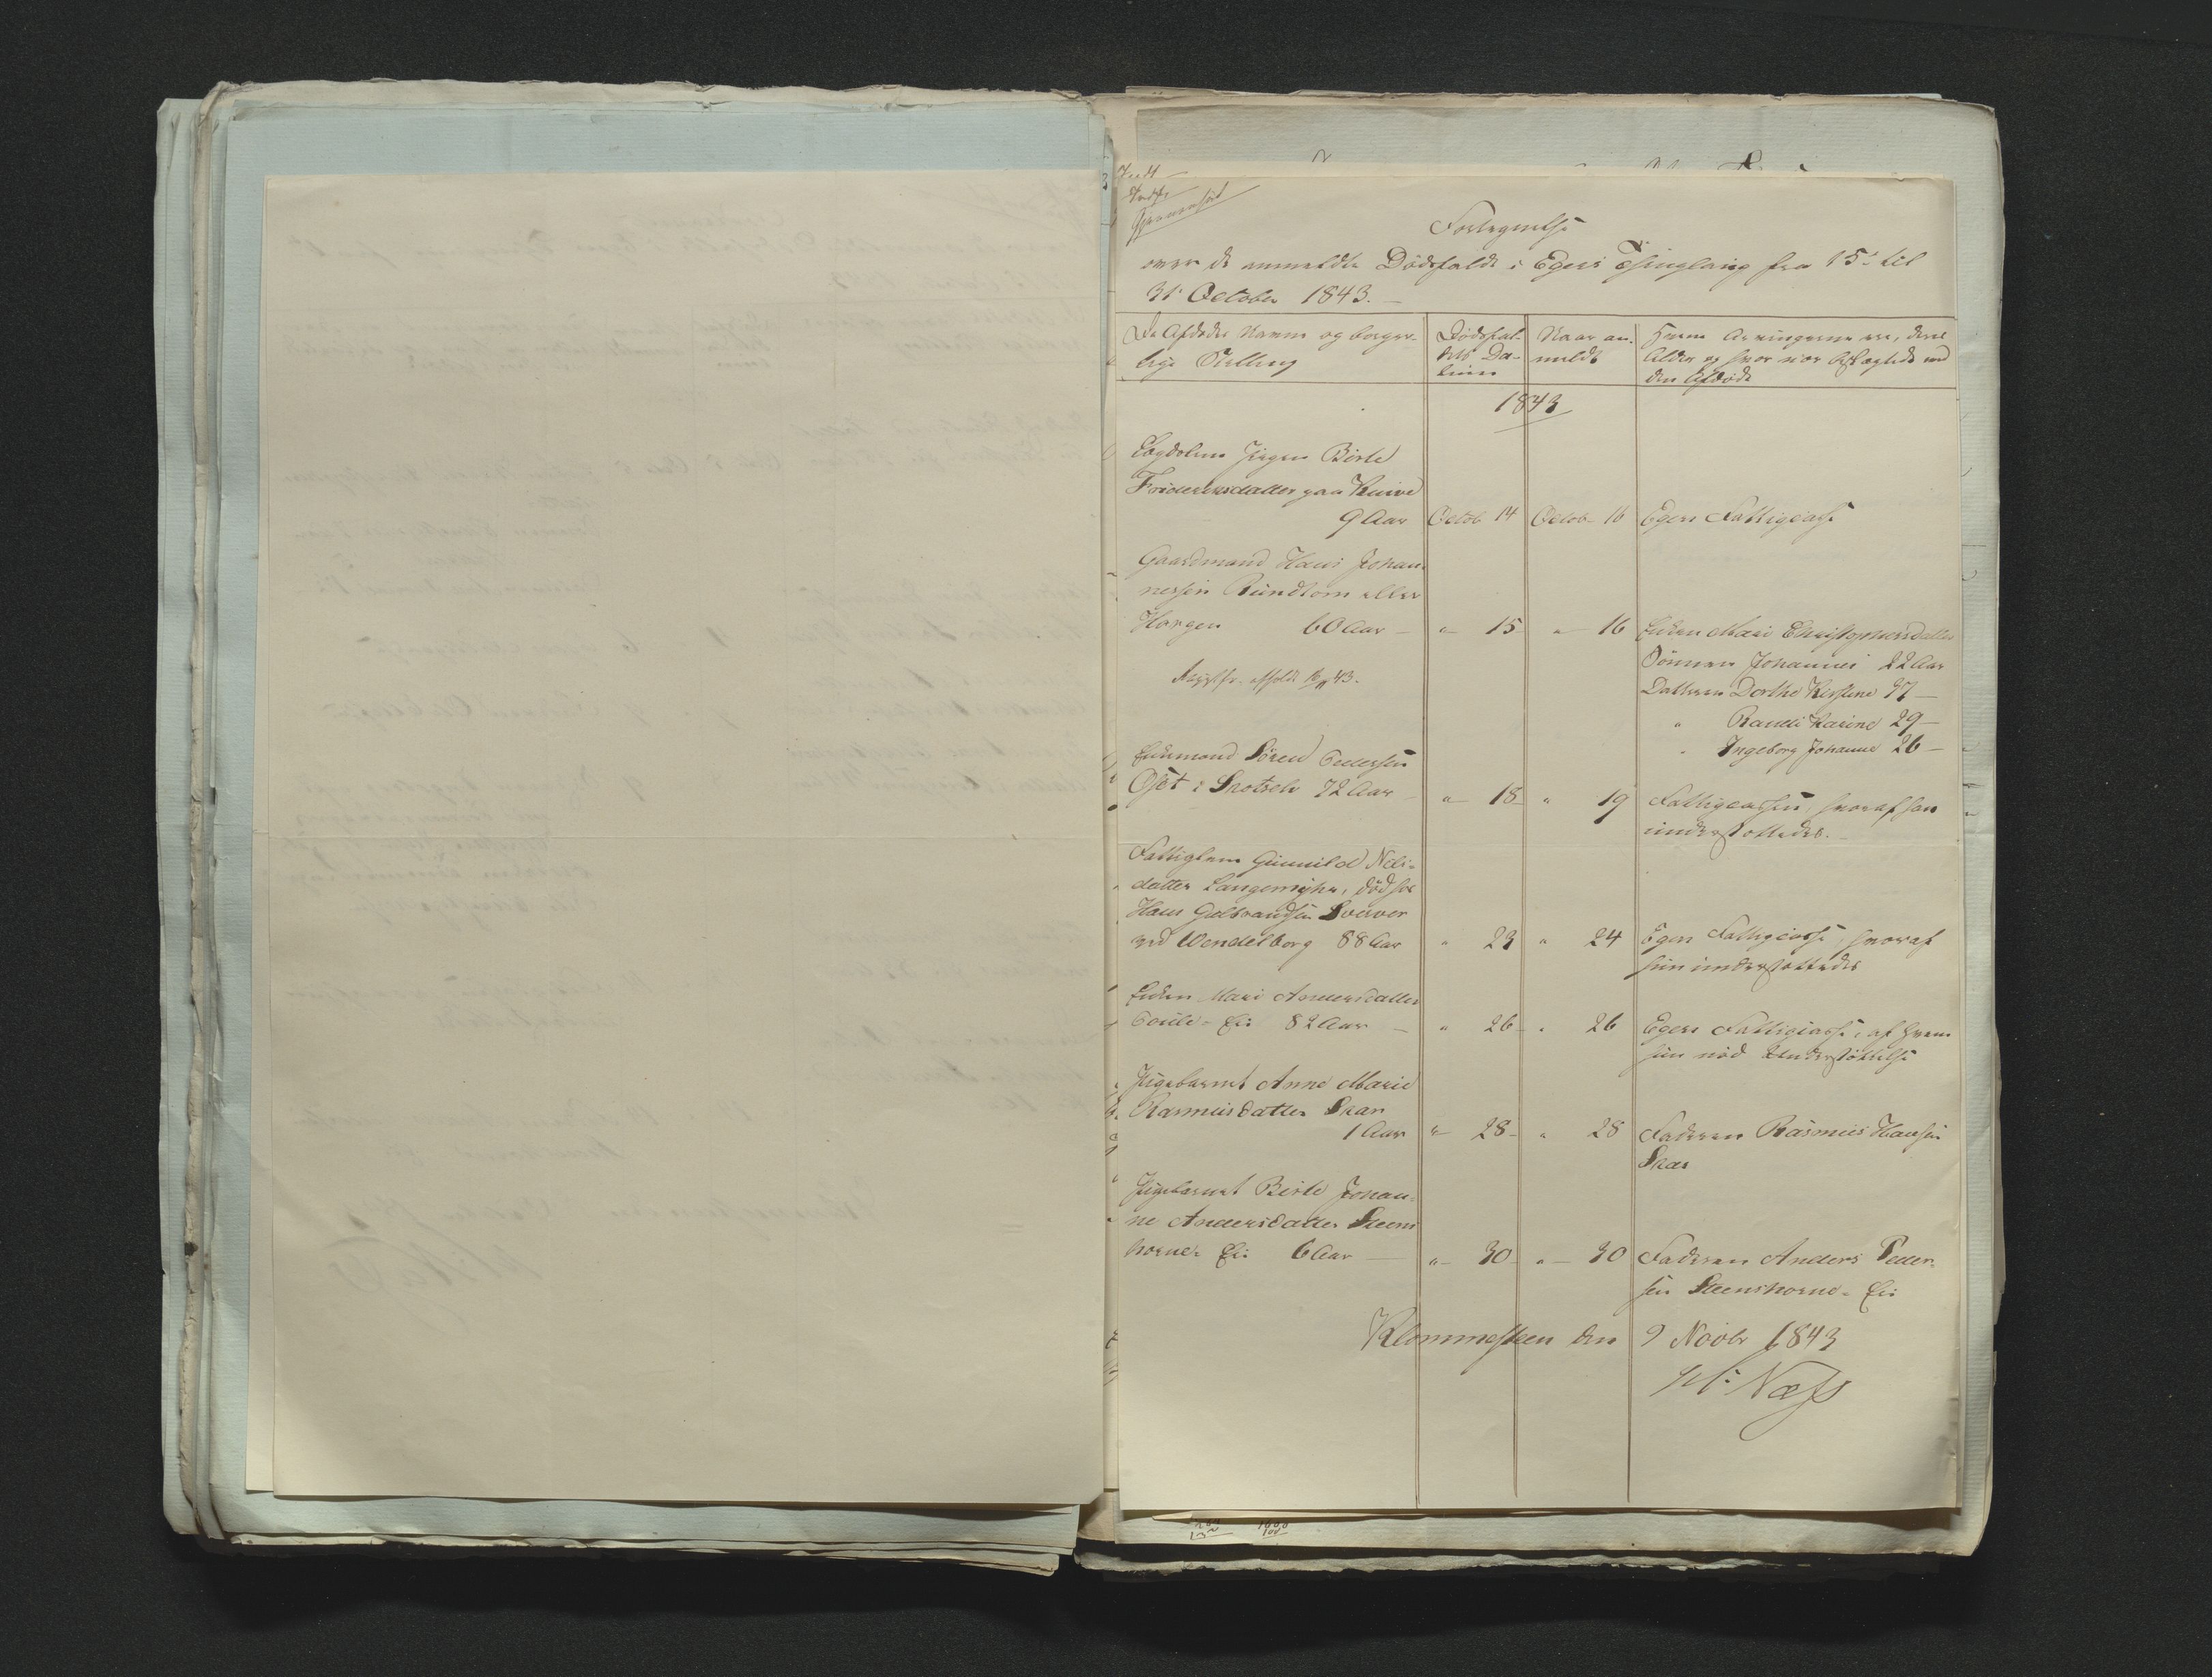 Fortegnelse
over de anmeldte Dødsfalde i Egers Thinglaug fra 15d til
31t October 1843.
De Afdødes Navne og borger-
lige Stilling
Dødsfal-
dets Da-
tum
Naar an-
meldt
Hvem Arvingerne ere, deres
Alder og hvor nær beslægtede med
den Afdøde
1843
Lægdslem Pigen Birte
Fredriksdatter paa Knive
9 Aar Octob 14 Octob 16 Egers Fattigcasse
Gaardmand Hans Johan-
nessen Rundtom eller
Hargen 60 Aar - " 15 " 16 Enken Mari Christophersdatter
Sønnen Johannes 22 Aar
Datteren Dorthe Kirstine 37 -
" Randi Karine 29 -
" Ingeborg Johanne 26 -
afholdt 16/11 43.
Enkemand Søren Pedersen
Oset i Skotselv 72 Aar " 18 " 19 Fattigcassen, hvoraf han
understøttedes.
Fattiglem Gunnild Nils-
datter Langemyhr, død hos
Hans Gulbrandsen Sverver
ved Vendelborg 88 Aar " 23 " 24 Egers Fattigcasse, hvoraf
hun understøttedes
Enken Mari Andersdatter
- Eie 82 Aar - " 26 " 26 Egers Fattigcasse, af hvem
hun nød Understøttelse
Pigebarnet Anne Marie
Rasmusdatter Skar
1 Aar " 28 " 28 Faderen Rasmus Hansen
Skar
Pigebarnet Birte Johan-
ne Andersdatter Steens
horne Eie 6 Aar - " 30 " 30 Faderen Anders Peder-
sen Steenshorne - Eie
Klommesteen den 9 Novbr 1843
Næss